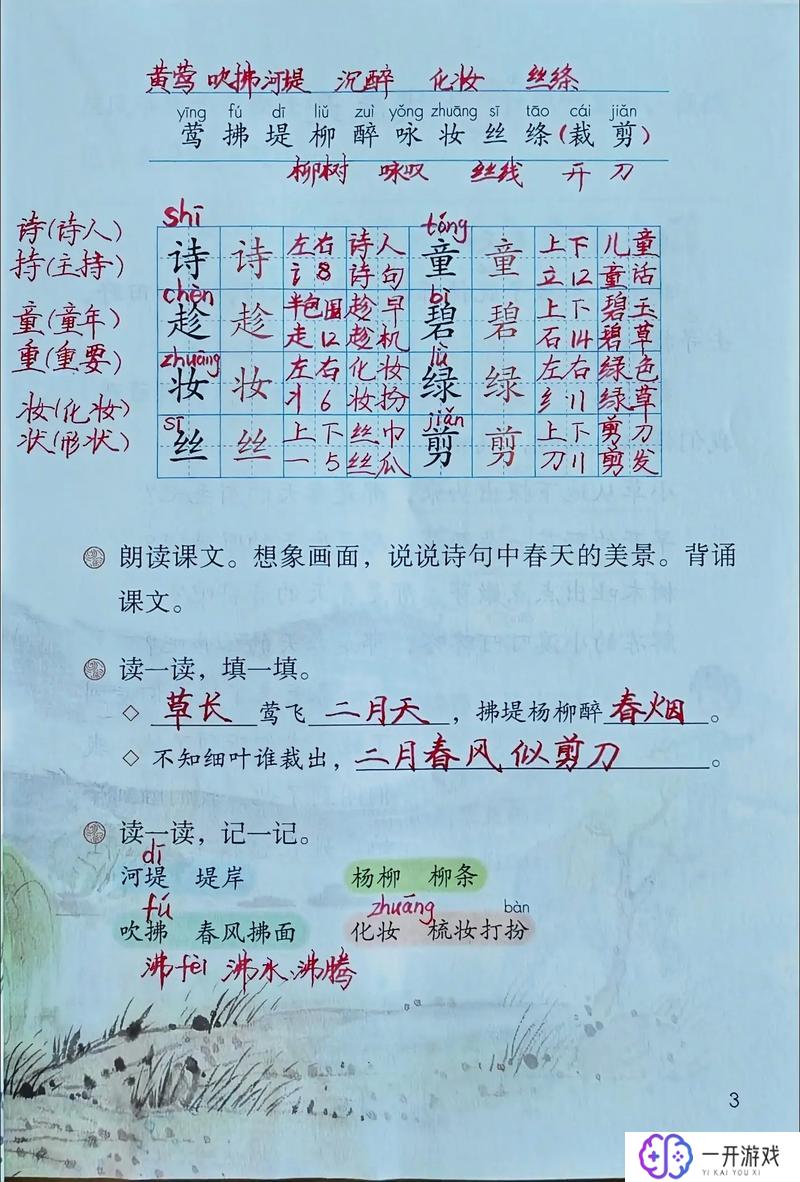 黄莺 吹拂河堤 沉醉 化妆 丝绦
yīng fú dī liǔ zuì yǒng zhuāng sī tāo cái jiǎn
莺 拂 堤 柳 醉 咏 妆 丝 绦(裁 剪)
柳树 咏叹 丝线 开 刀
诗(诗人)
持(主持)
童(童年)
重(重要)
妆(化妆)
状(形状)
shī tóng
诗 诗 左右 诗人 童 童 上下 儿童
讠8 诗句 立12 童话
chèn bì
趁 趁 半包围 趁早 碧 碧 上下 碧玉
走12 趁机 石14 碧草
zhuāng lǜ
妆 妆 左右 化妆 绿 绿 左右 绿色
丬6 妆扮 纟11 绿草
sī jiǎn
丝 丝 上下 丝巾 剪 剪 上下 剪刀
一5 丝瓜 刀11 剪发
朗读课文。想象画面，说说诗句中春天的美景。背诵
课文。
读一读，填一填。
◇ 草长莺飞二月天，拂堤杨柳醉春烟。
◇ 不知细叶谁裁出，二月春风似剪刀。
读一读，记一记。
dī
河堤 堤岸 杨柳 柳条
fú zhuāng bàn
吹拂 春风拂面 化妆 梳妆打扮
沸fèi 沸水、沸腾
3
一开游戏
YI KAI YOU XI